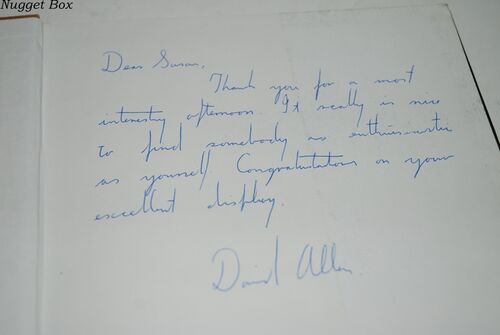 Nugget Box
Dear Susan,
Thank you for a most
interesting afternoon. It really is nice
to find somebody as enthusiastic
as yourself. Congratulations on your
excellent display.
David Allen.